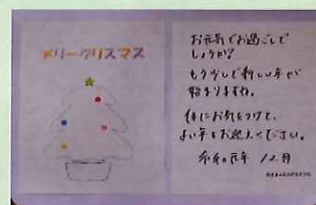 メリークリスマス
お元気でお過ごしで
しょうか?
もう少しで新しい年が
始まりますね。
体にお気をつけて、
よい年をお迎えください。
令和元年 12月